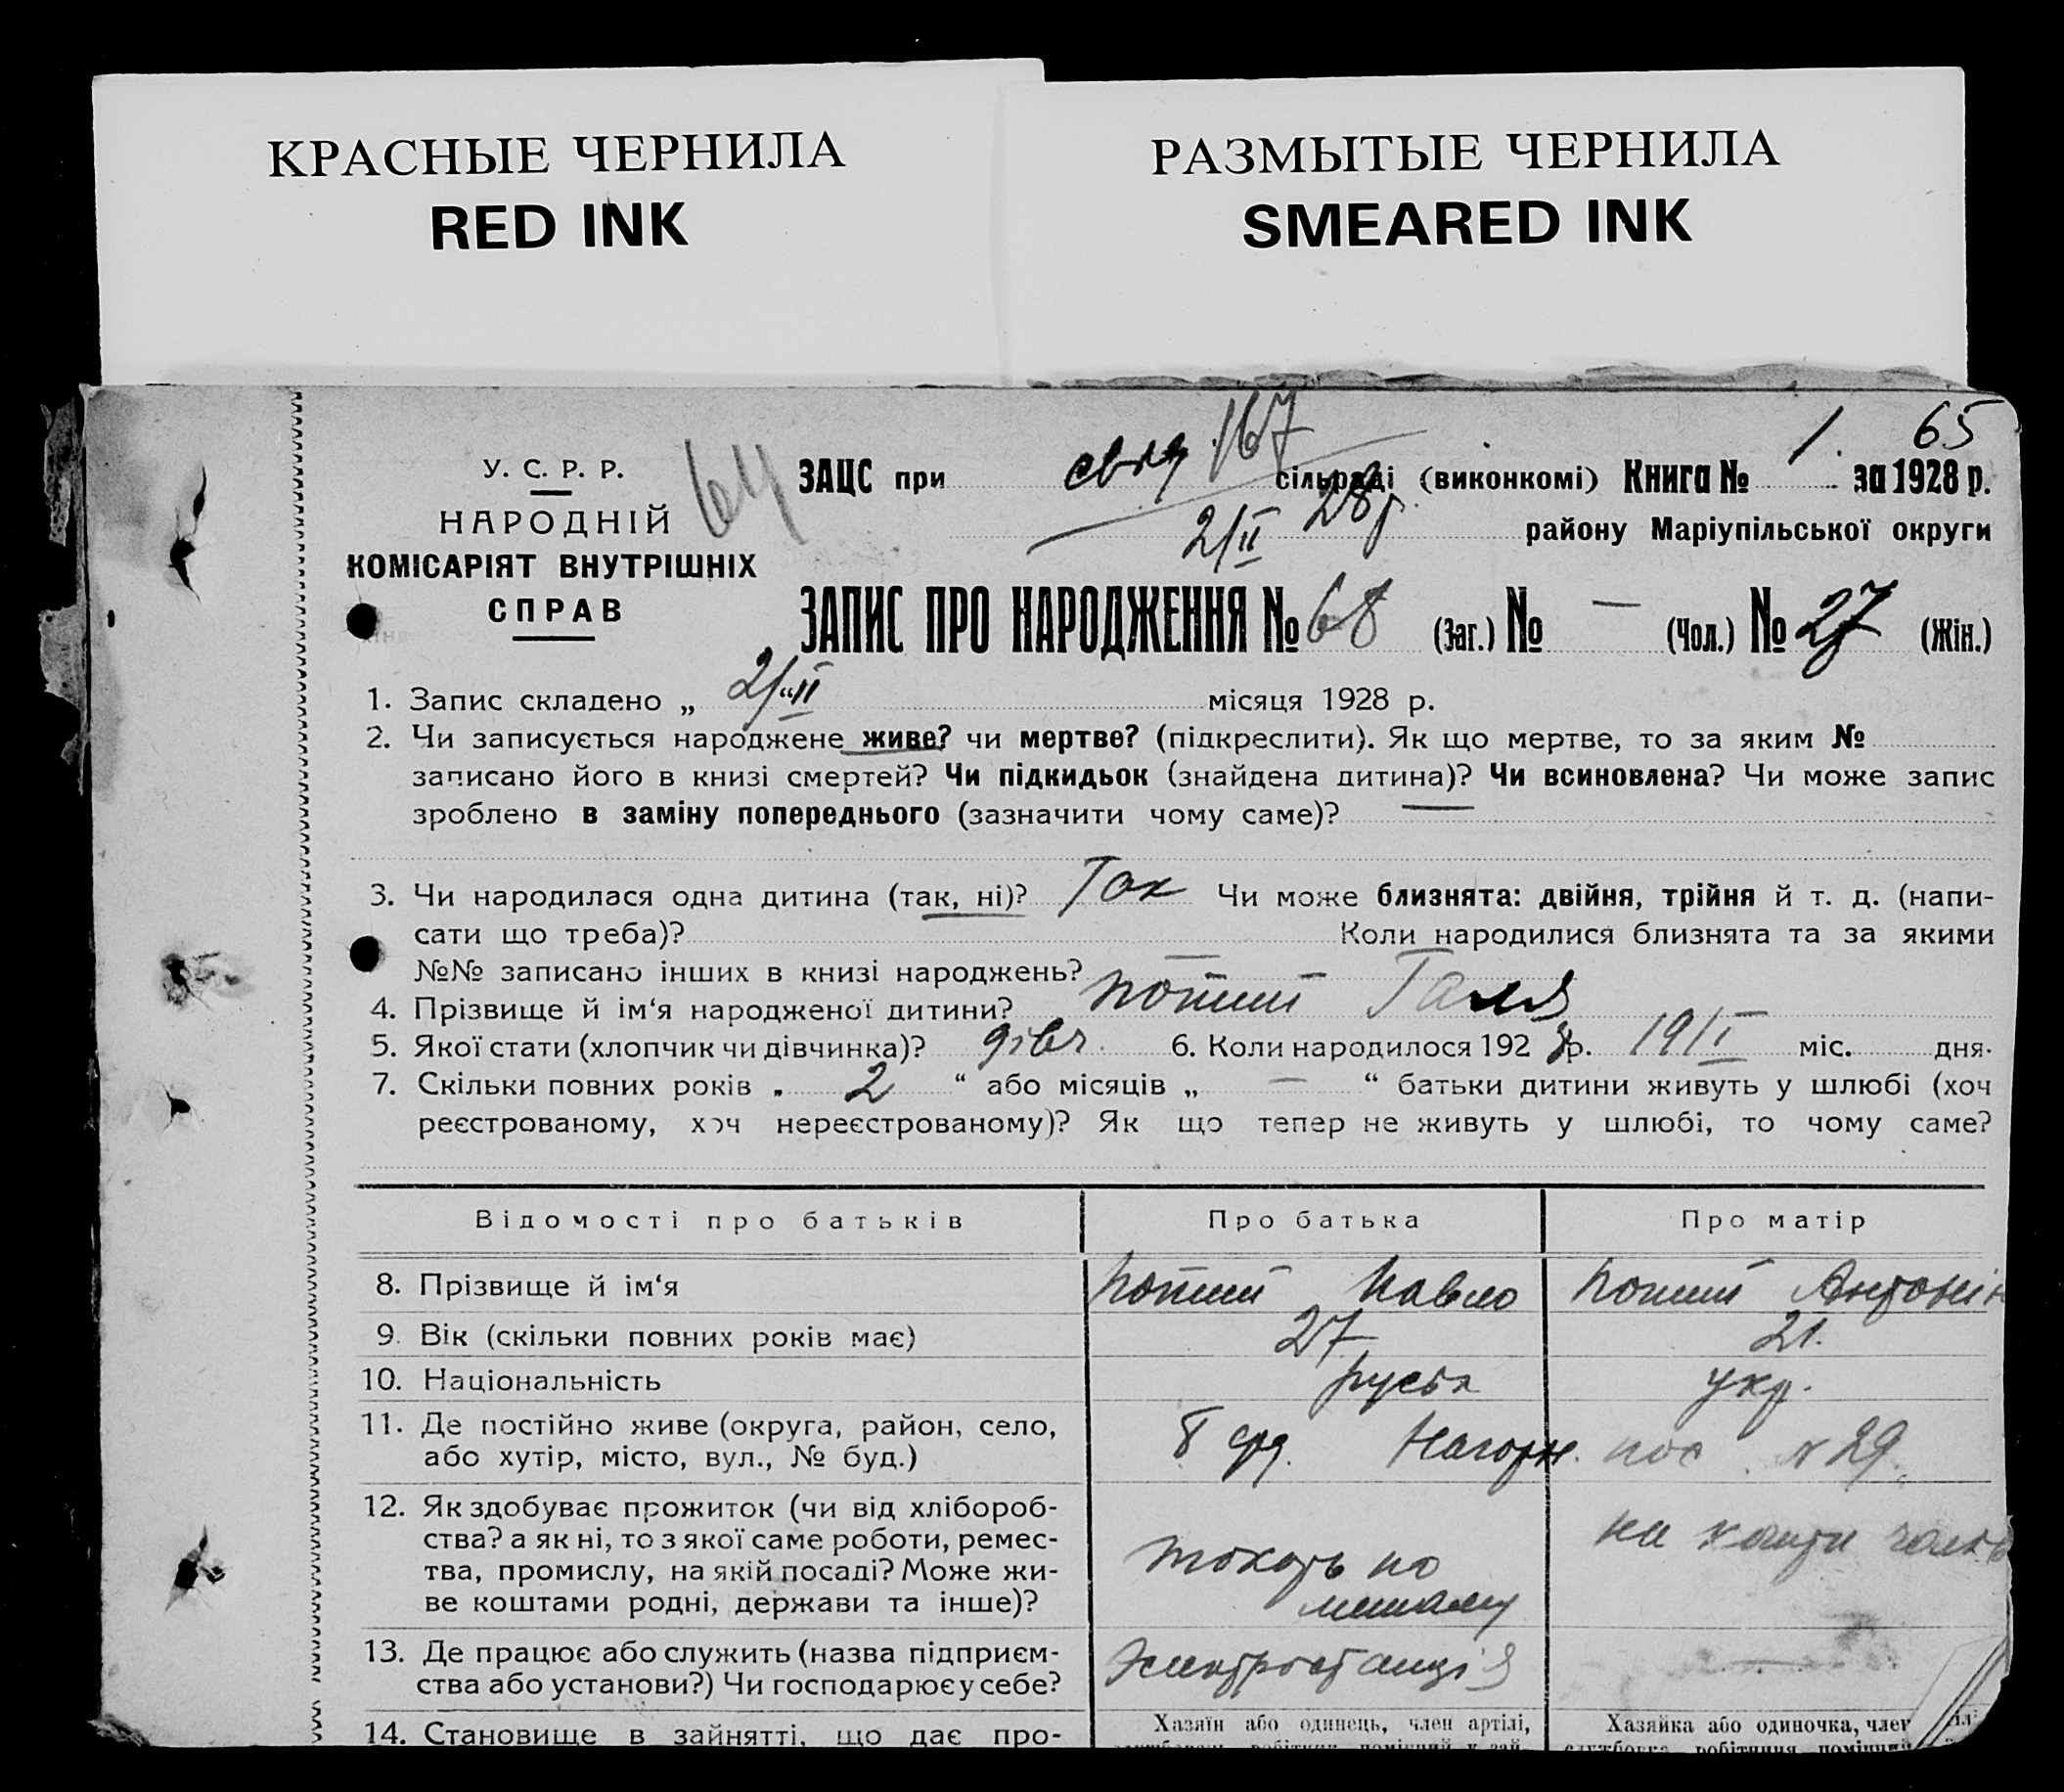 КРАСНЫЕ ЧЕРНИЛА
RED INK
РАЗМЫТЫЕ ЧЕРНИЛА
SMEARED INK
65
У. С. Р. Р.
НАРОДНІЙ
КОМІСАРІЯТ ВНУТРІШНІХ
СПРАВ
64
ЗАЦС при 167 сільраді (виконкомі) Книга № 1. за 1928 р.
2/II 28р. району Маріупільської округи
ЗАПИС ПРО НАРОДЖЕННЯ № 68 (Заг.) № — (Чол.) № 27 (Жін.)
1. Запис складено „ 2/“II місяця 1928 р.
2. Чи записується народжене живе? чи мертве? (підкреслити). Як що мертве, то за яким №
записано його в книзі смертей? Чи підкидьок (знайдена дитина)? Чи всиновлена? Чи може запис
зроблено в заміну попереднього (зазначити чому саме)? —
3. Чи народилася одна дитина (так, ні)? Так Чи може близнята: двійня, трійня й т. д. (напи-
сати що треба)? Коли народилися близнята та за якими
№№ записано інших в книзі народжень? —
4. Прізвище й ім‘я народженої дитини? Галя
5. Якої стати (хлопчик чи дівчинка)? дівч. 6. Коли народилося 1928 р. 19/I міс. дня.
7. Скільки повних років „ 2 “ або місяців „ — “ батьки дитини живуть у шлюбі (хоч
реєстрованому, хоч нереєстрованому)? Як що тепер не живуть у шлюбі, то чому саме?
Відомості про батьків Про батька Про матір
8. Прізвище й ім‘я Павло
9. Вік (скільки повних років має) 27 21.
10. Національність укр.
11. Де постійно живе (округа, район, село,
або хутір, місто, вул., № буд.) Нагорн. пос. № 29.
12. Як здобуває прожиток (чи від хлібороб-
ства? а як ні, то з якої саме роботи, ремес-
тва, промислу, на якій посаді? Може жи-
ве коштами родні, держави та інше)?
токарь по
металу
на кошти
13. Де працює або служить (назва підприєм-
ства або установи?) Чи господарює у себе?
Електростанція
14. Становище в зайнятті, що дає про-
Хазяїн або одинець, член артілі,
Хазяйка або одиночка, член